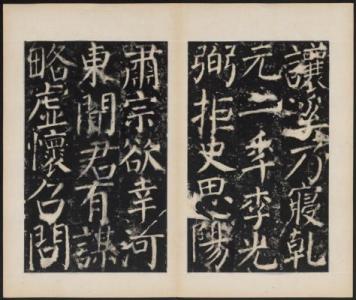 讓溪乃寢乾
元二年李光
弼拒史思陽
肅宗欲幸河
東聞君有謀
略虛懷召問